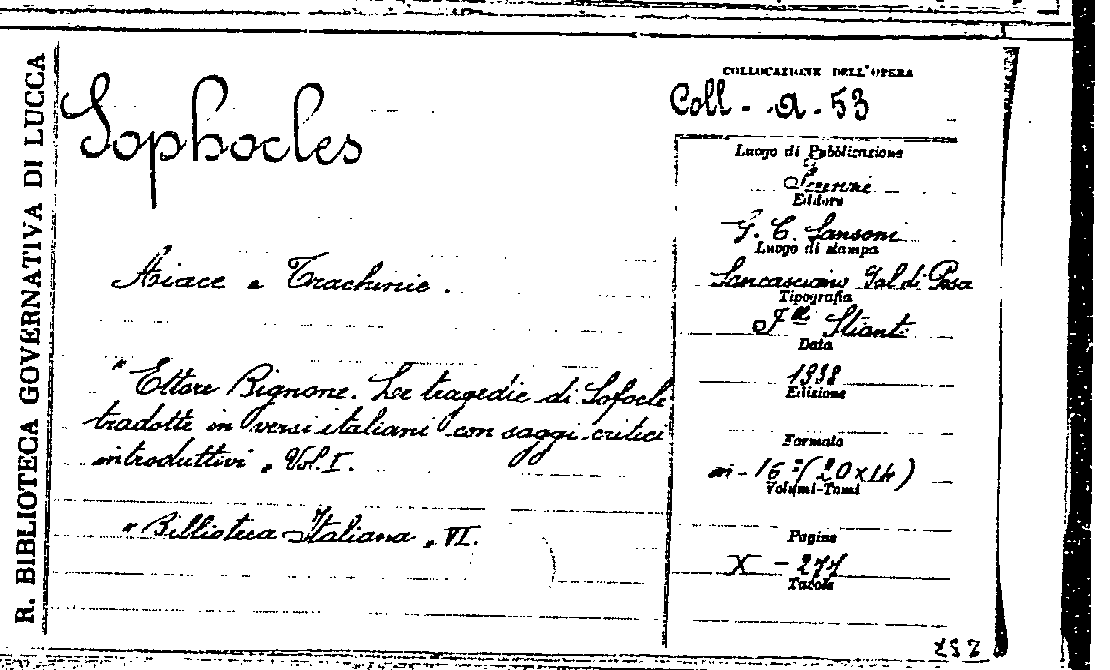 R. BIBLIOTECA GOVERNATIVA DI LUCCA
Sophocles
Aiace e Trachinie.
"Ettore Bignone. Le tragedie di Sofocle
tradotte in versi italiani con saggi critici
introduttivi" Vol. I.
"Biblioteca Italiana" VI.
COLLOCAZIONE DELL'OPERA
Coll - a. 53
Luogo di Pubblicazione
Firenze
Editore
G. C. Sansoni
Luogo di stampa
Sancasciano Val di Pesa
Tipografia
F.lli Stianti
Data
1938
Edizione
Formato
in-16° (20x14)
Volumi-Tomi
Pagine
X - 277
Tavole